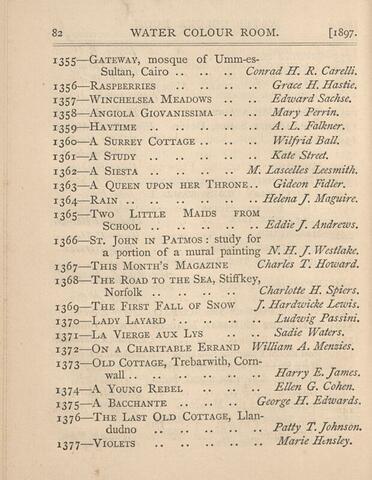 82 WATER COLOUR ROOM. [1897.
1355—GATEWAY, mosque of Umm-es-
Sultan, Cairo .. .. .. Conrad H. R. Carelli.
1356—RASPBERRIES .. .. .. Grace H. Hastie.
1357—WINCHELSEA MEADOWS .. .. Edward Sachse.
1358—ANGIOLA GIOVANISSIMA .. .. Mary Perrin.
1359—HAYTIME .. .. .. A. L. Falkner.
1360—A SURREY COTTAGE .. .. Wilfrid Ball.
1361—A STUDY .. .. .. Kate Street.
1362—A SIESTA .. .. M. Lascelles Leesmith.
1363—A QUEEN UPON HER THRONE .. Gideon Fidler.
1364—RAIN .. .. .. Helena J. Maguire.
1365—TWO LITTLE MAIDS FROM
SCHOOL .. .. .. Eddie J. Andrews.
1366—ST. JOHN IN PATMOS: study for
a portion of a mural painting N. H. J. Westlake.
1367—THIS MONTH'S MAGAZINE Charles T. Howard.
1368—THE ROAD TO THE SEA, Stiffkey,
Norfolk .. .. .. Charlotte H. Spiers.
1369—THE FIRST FALL OF SNOW J. Hardwicke Lewis.
1370—LADY LAYARD .. .. Ludwig Passini.
1371—LA VIERGE AUX LYS .. .. Sadie Waters.
1372—ON A CHARITABLE ERRAND William A. Menzies.
1373—OLD COTTAGE, Trebarwith, Corn-
wall .. .. .. .. Harry E. James.
1374—A YOUNG REBEL .. .. Ellen G. Cohen.
1375—A BACCHANTE .. .. George H. Edwards.
1376—THE LAST OLD COTTAGE, Llan-
dudno .. .. .. Patty T. Johnson.
1377—VIOLETS .. .. .. Marie Hensley.